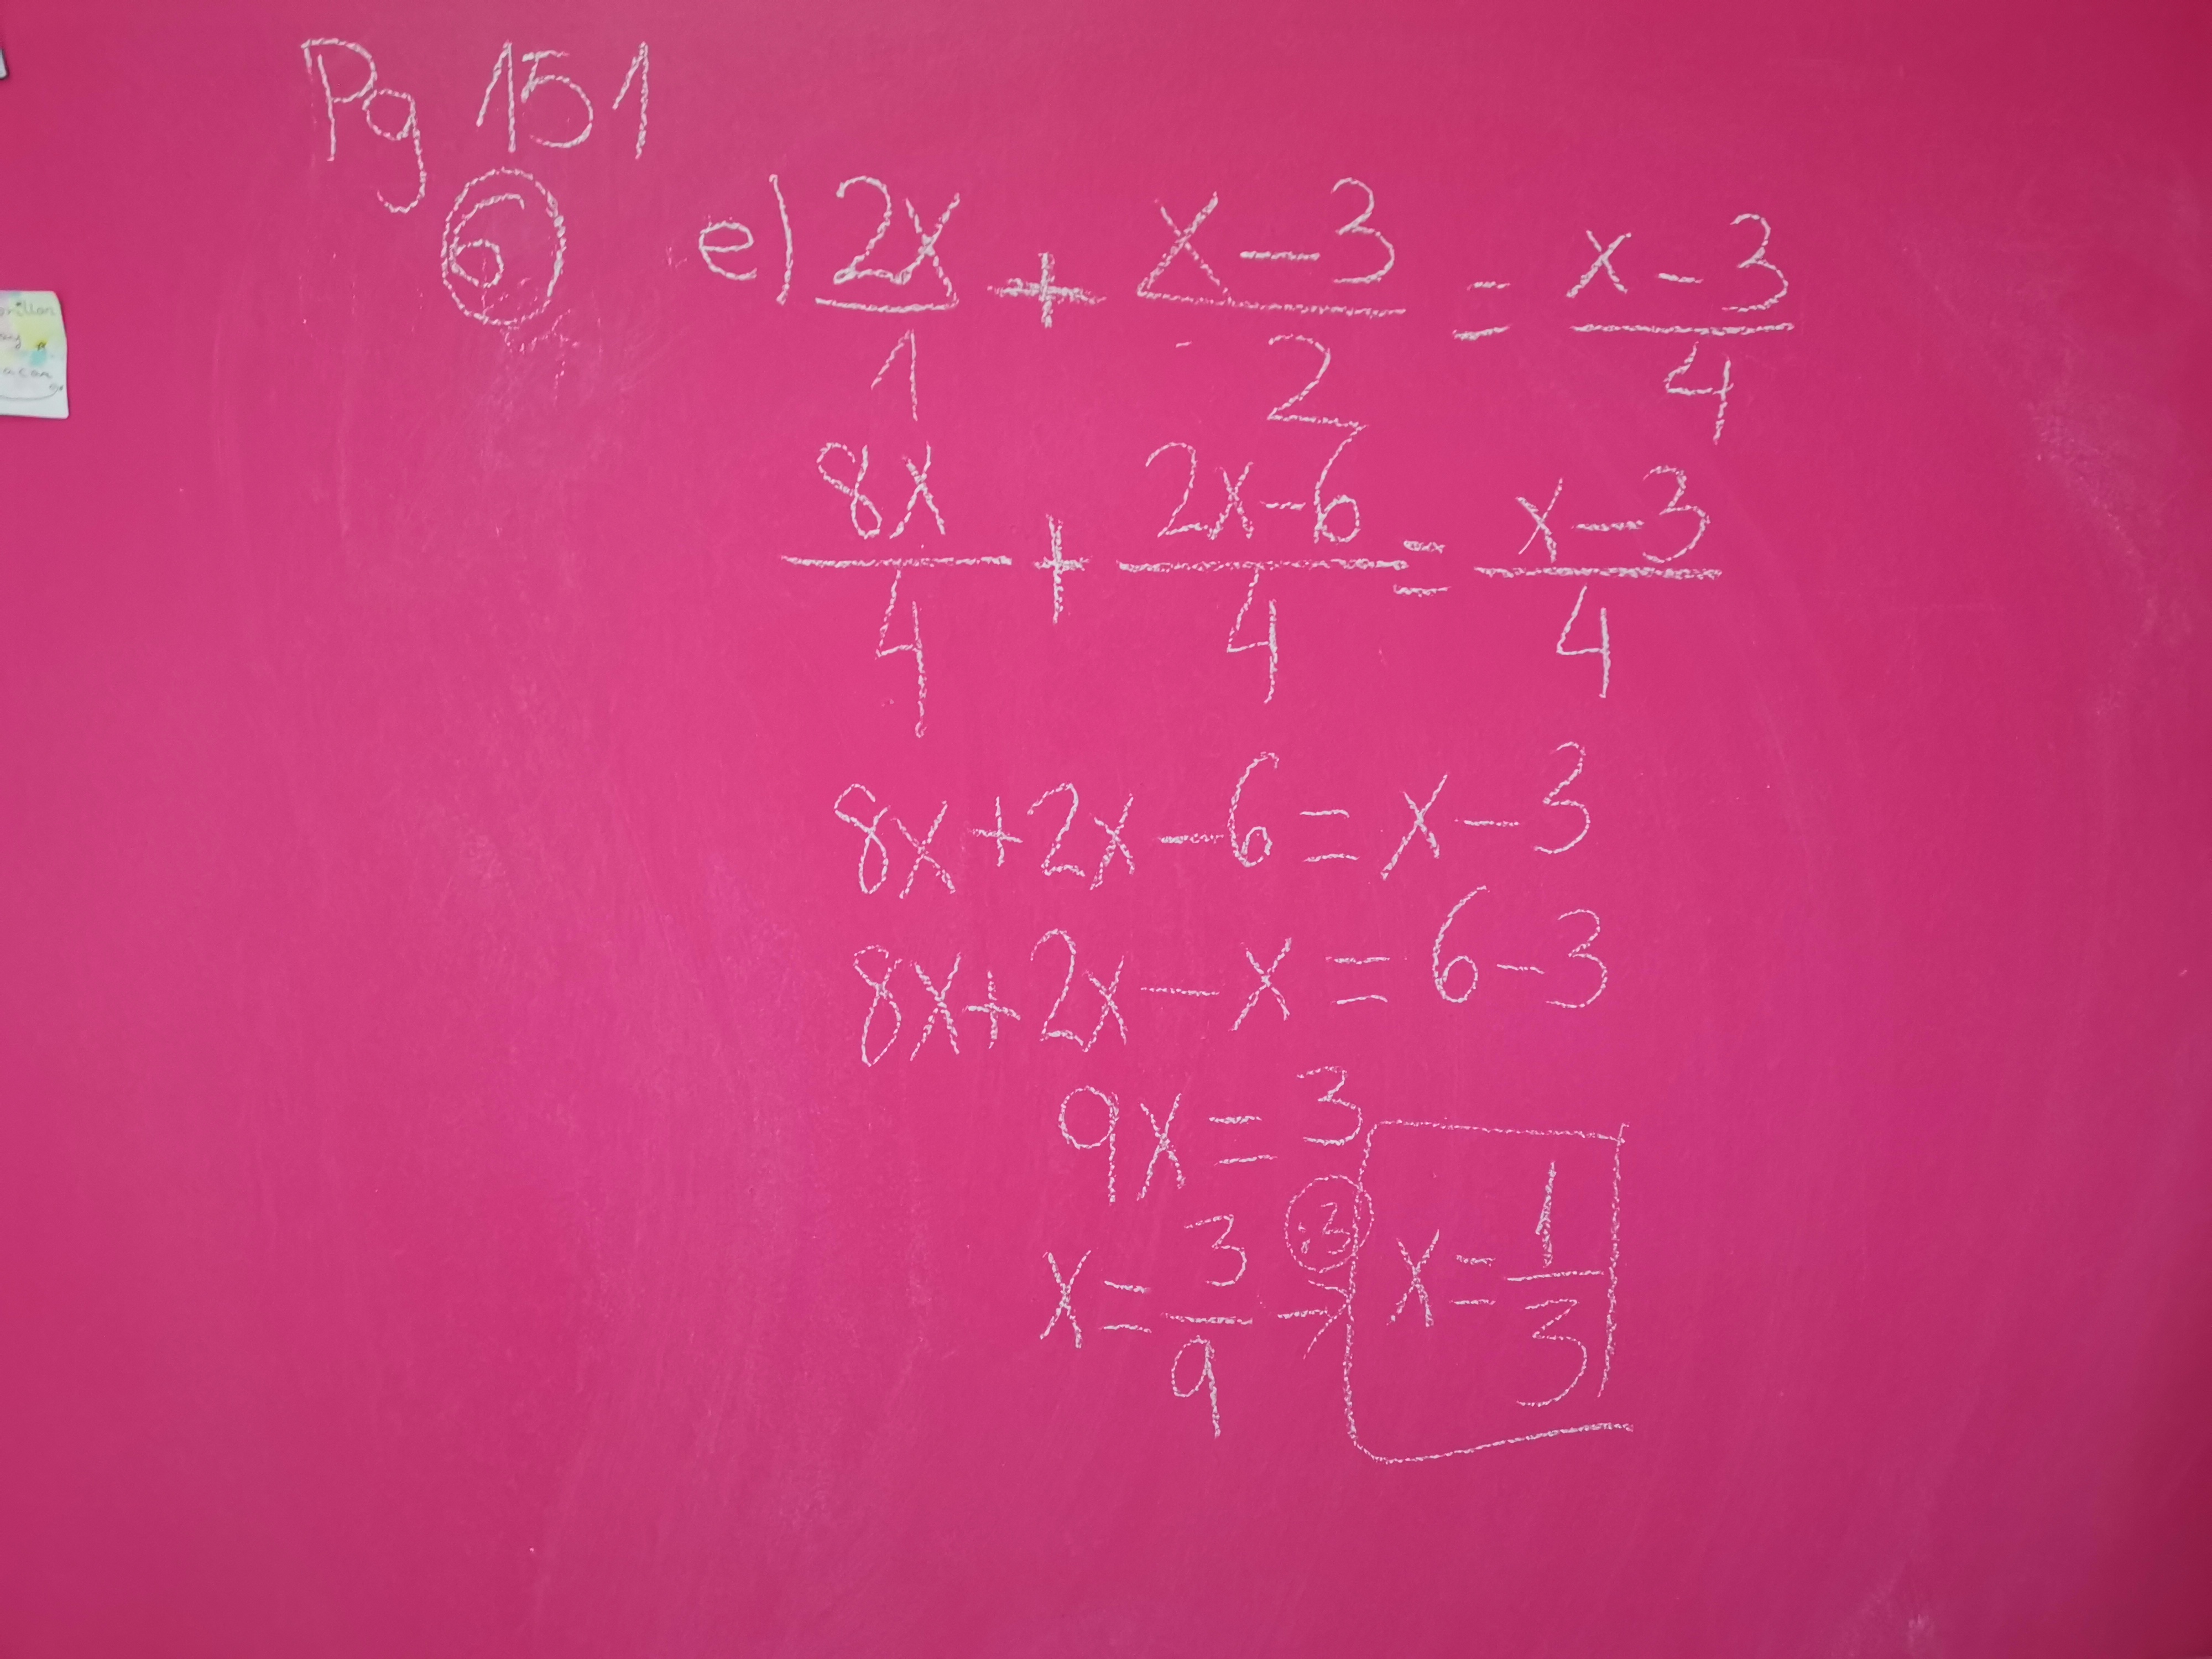 Pg 151
6 e) 2x/1 + x-3/2 = x-3/4
8x/4 + 2x-6/4 = x-3/4
8x+2x-6=x-3
8x+2x-x=6-3
9x=3
x=3/9 :3 → x=1/3